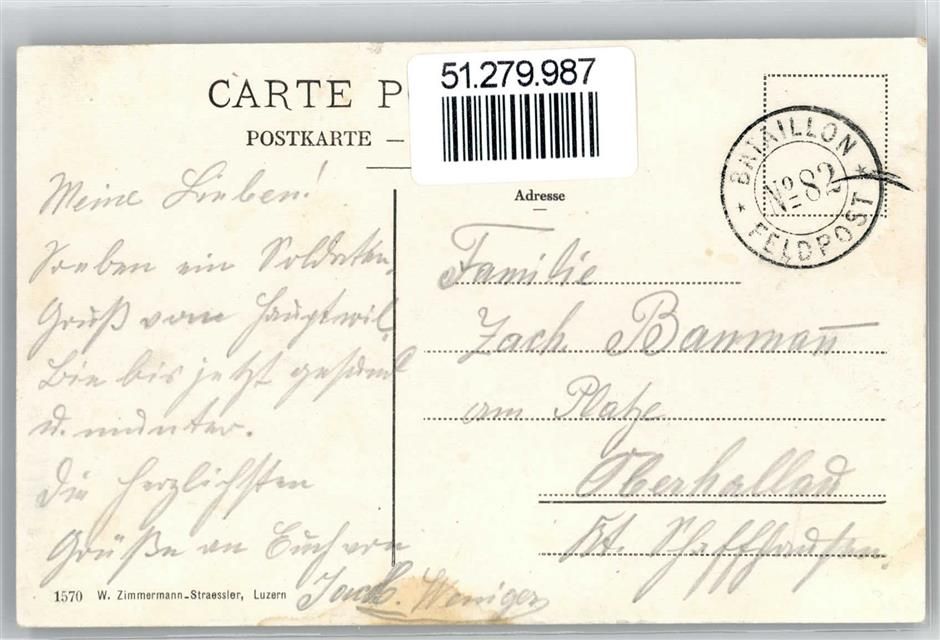 51.279.987
CARTE P
POSTKARTE —
BATAILLON
No 82
FELDPOST
Adresse
Meine Lieben!
Soeben ein Soldaten-
Gruß vom Hauptwil.
Bin bis jetzt gesund
u. munter.
Die herzlichsten
Grüße an Euch von
Jack. Weniger
Familie
Zach. Baumann
am Platze
Oberhallau
Kt. Schaffhausen.
1570 W. Zimmermann-Straessler, Luzern